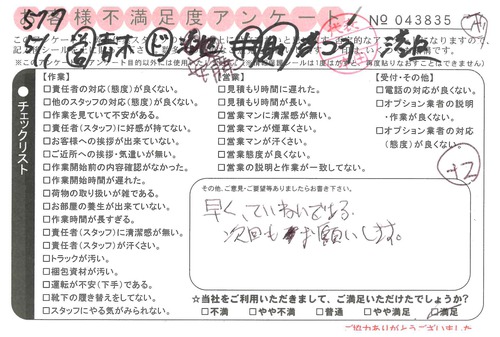 お客様不満足度アンケート
No 043835
チェックリスト
【作業】
□責任者の対応(態度)が良くない。
□他のスタッフの対応(態度)が良くない。
□作業を見ていて不安がある。
□責任者(スタッフ)に好感が持てない。
□お客様への挨拶が出来ていない。
□ご近所への挨拶・気遣いが無い。
□作業開始前の内容確認がなかった。
□作業開始時間が遅れた。
□荷物の取り扱いが雑である。
□お部屋の養生が出来ていない。
□作業時間が長すぎる。
□責任者(スタッフ)に清潔感が無い。
□責任者(スタッフ)が汗くさい。
□トラックが汚い。
□梱包資材が汚い。
□運転が不安(下手)である。
□靴下の履き替えをしてない。
□スタッフにやる気がみられない。
【営業】
□見積もり時間に遅れた。
□見積もり時間が長い。
□営業マンに清潔感が無い。
□営業マンが煙草くさい。
□営業マンが汗くさい。
□営業態度が良くない。
□営業の説明と作業が一致してない。
【受付・その他】
□電話の対応が良くない。
□オプション業者の説明
・作業が良くない。
□オプション業者の対応
(態度)が良くない。
その他、ご意見・ご要望等ありましたらお書き下さい。
早く、ていねいである。
次回もお願いします。
☆当社をご利用いただきまして、ご満足いただけたでしょうか?
□不満 □やや不満 □普通 □やや満足 □満足
ご協力ありがとうございました